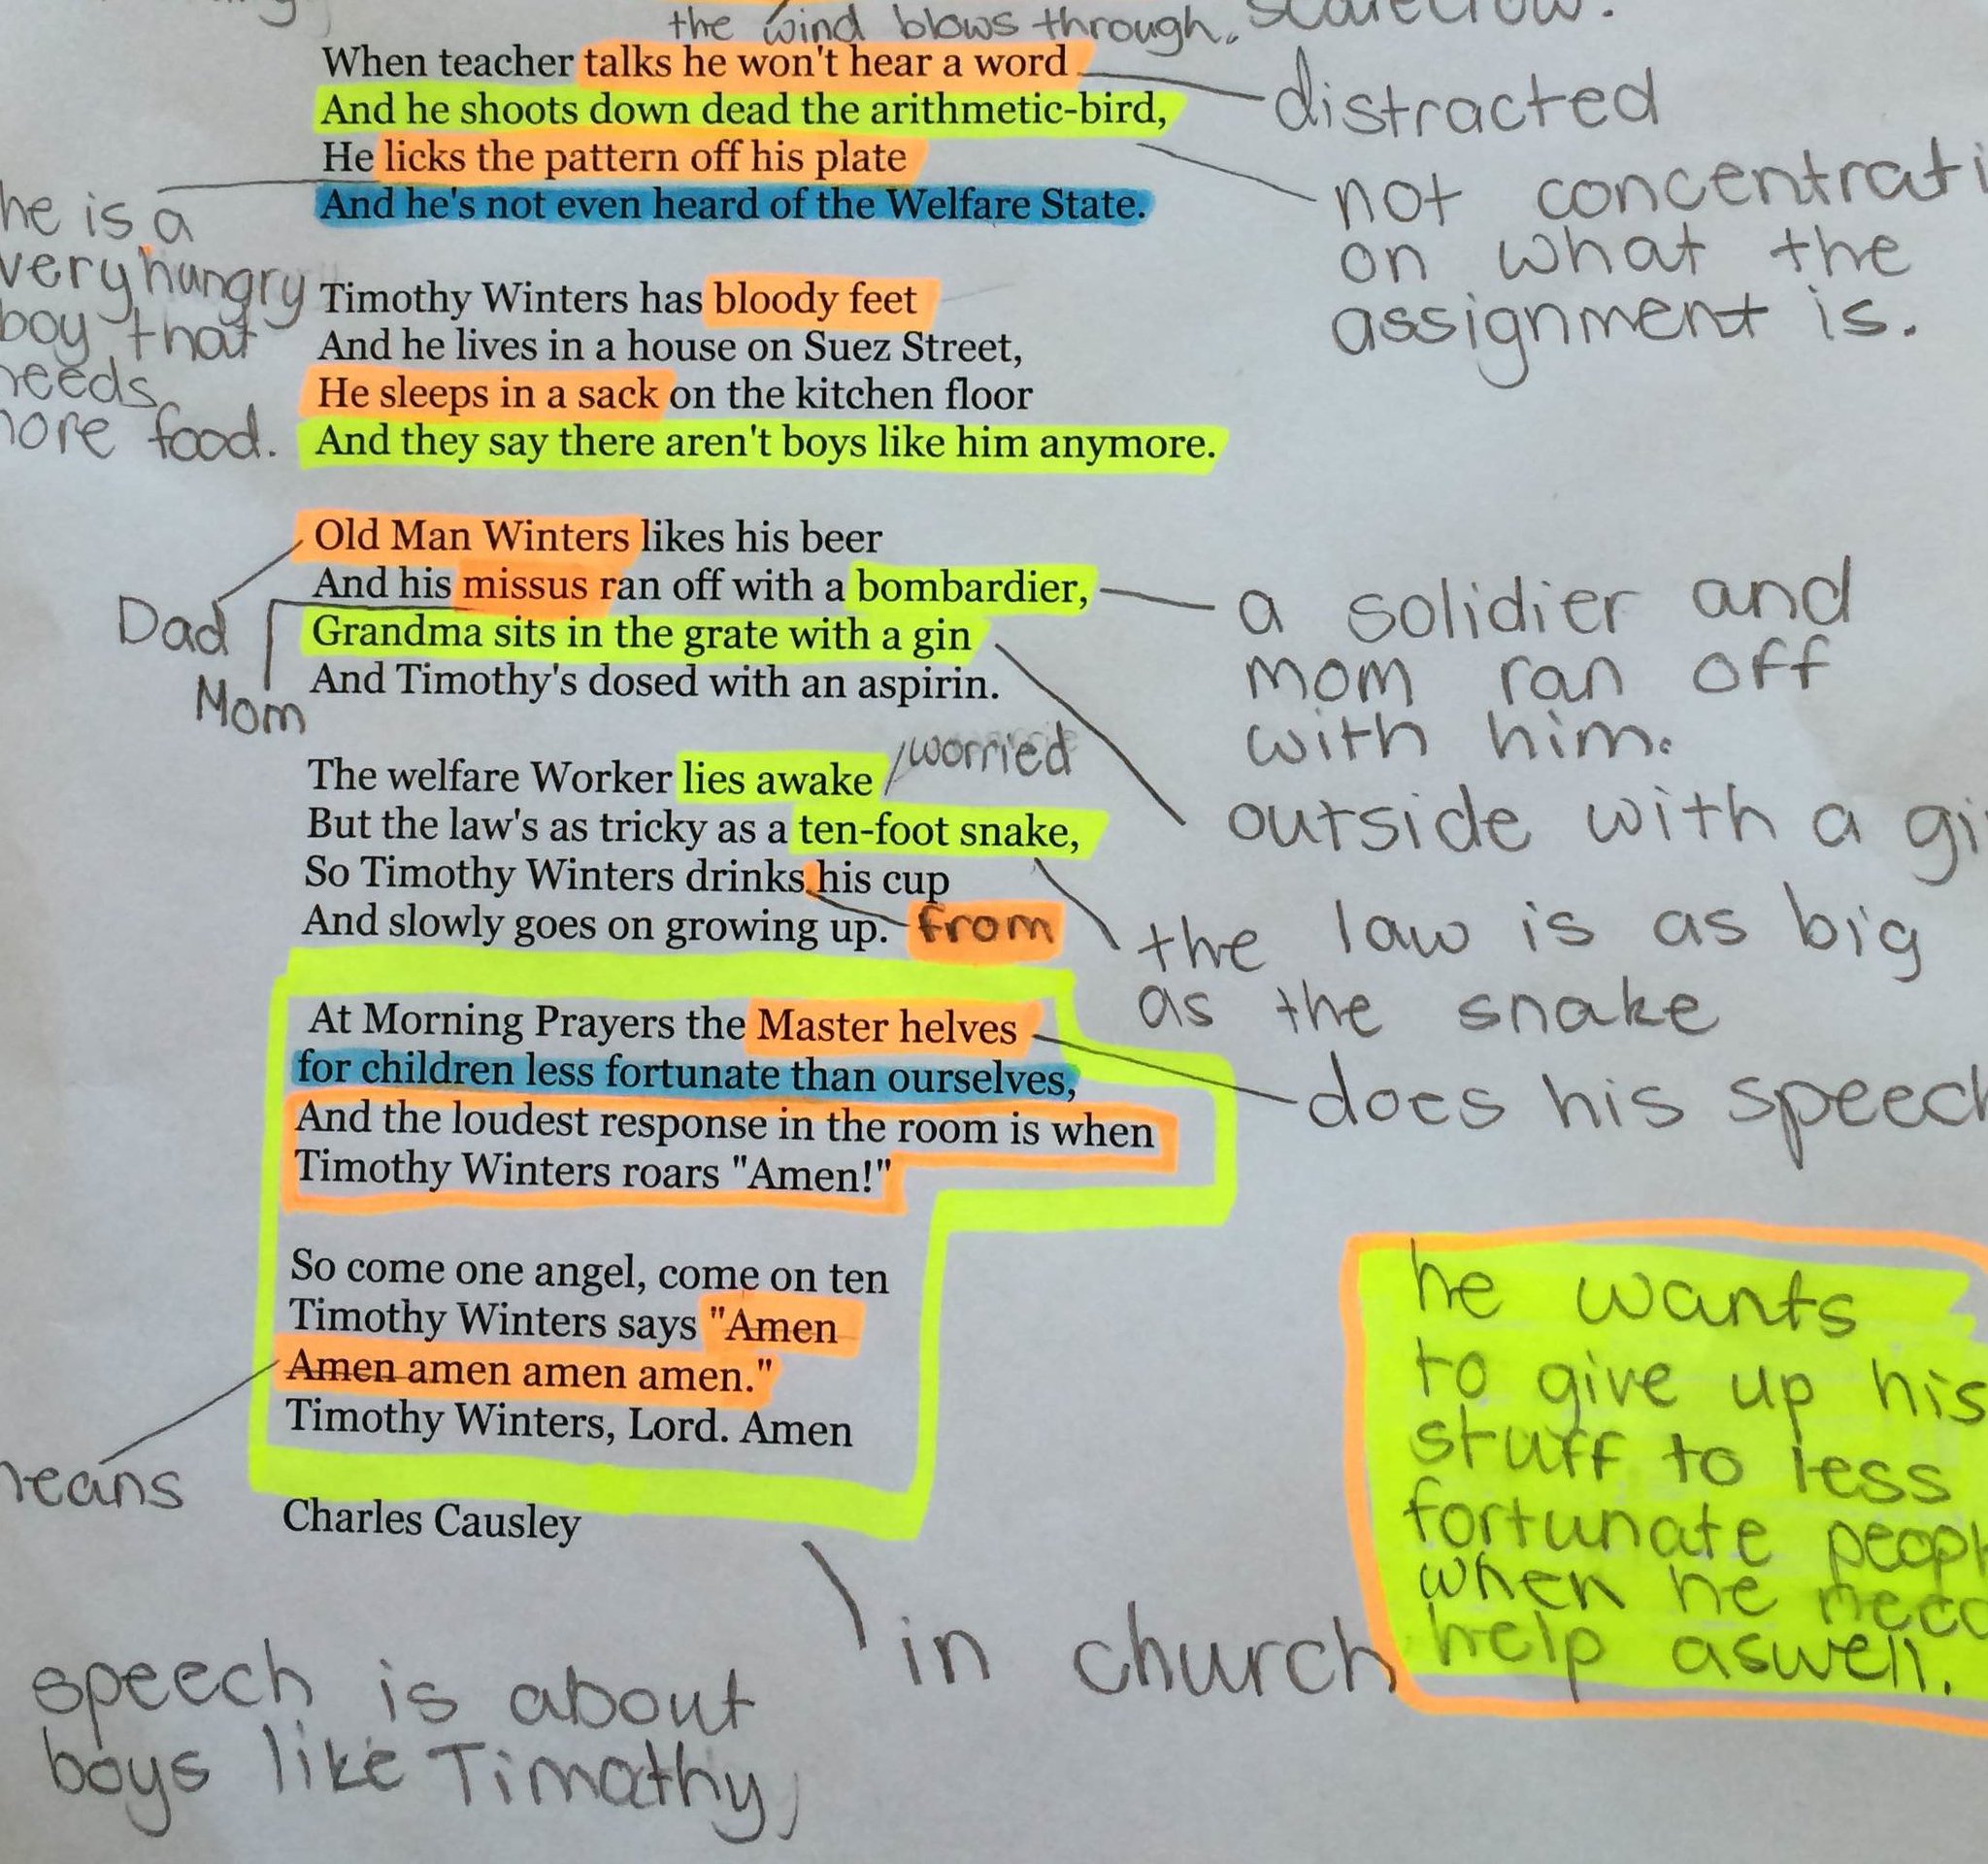 the wind blows through. scarecrow.
When teacher talks he won't hear a word
And he shoots down dead the arithmetic-bird,
He licks the pattern off his plate
And he's not even heard of the Welfare State.
distracted
not concentrati
on what the
assignment is.
he is a
very hungry
boy that
needs
more food.
Timothy Winters has bloody feet
And he lives in a house on Suez Street,
He sleeps in a sack on the kitchen floor
And they say there aren't boys like him anymore.
Old Man Winters likes his beer
And his missus ran off with a bombardier,
Grandma sits in the grate with a gin
And Timothy's dosed with an aspirin.
Dad
Mom
a solidier and
mom ran off
with him.
outside with a gi
The welfare Worker lies awake
worried
But the law's as tricky as a ten-foot snake,
So Timothy Winters drinks his cup
And slowly goes on growing up.
from
the law is as big
as the snake
At Morning Prayers the Master helves
for children less fortunate than ourselves,
And the loudest response in the room is when
Timothy Winters roars "Amen!"
does his speech
So come one angel, come on ten
Timothy Winters says "Amen
Amen amen amen amen."
Timothy Winters, Lord. Amen
means
Charles Causley
he wants
to give up his
stuff to less
fortunate peopl
when he need
help aswell.
in church
speech is about
boys like Timathy